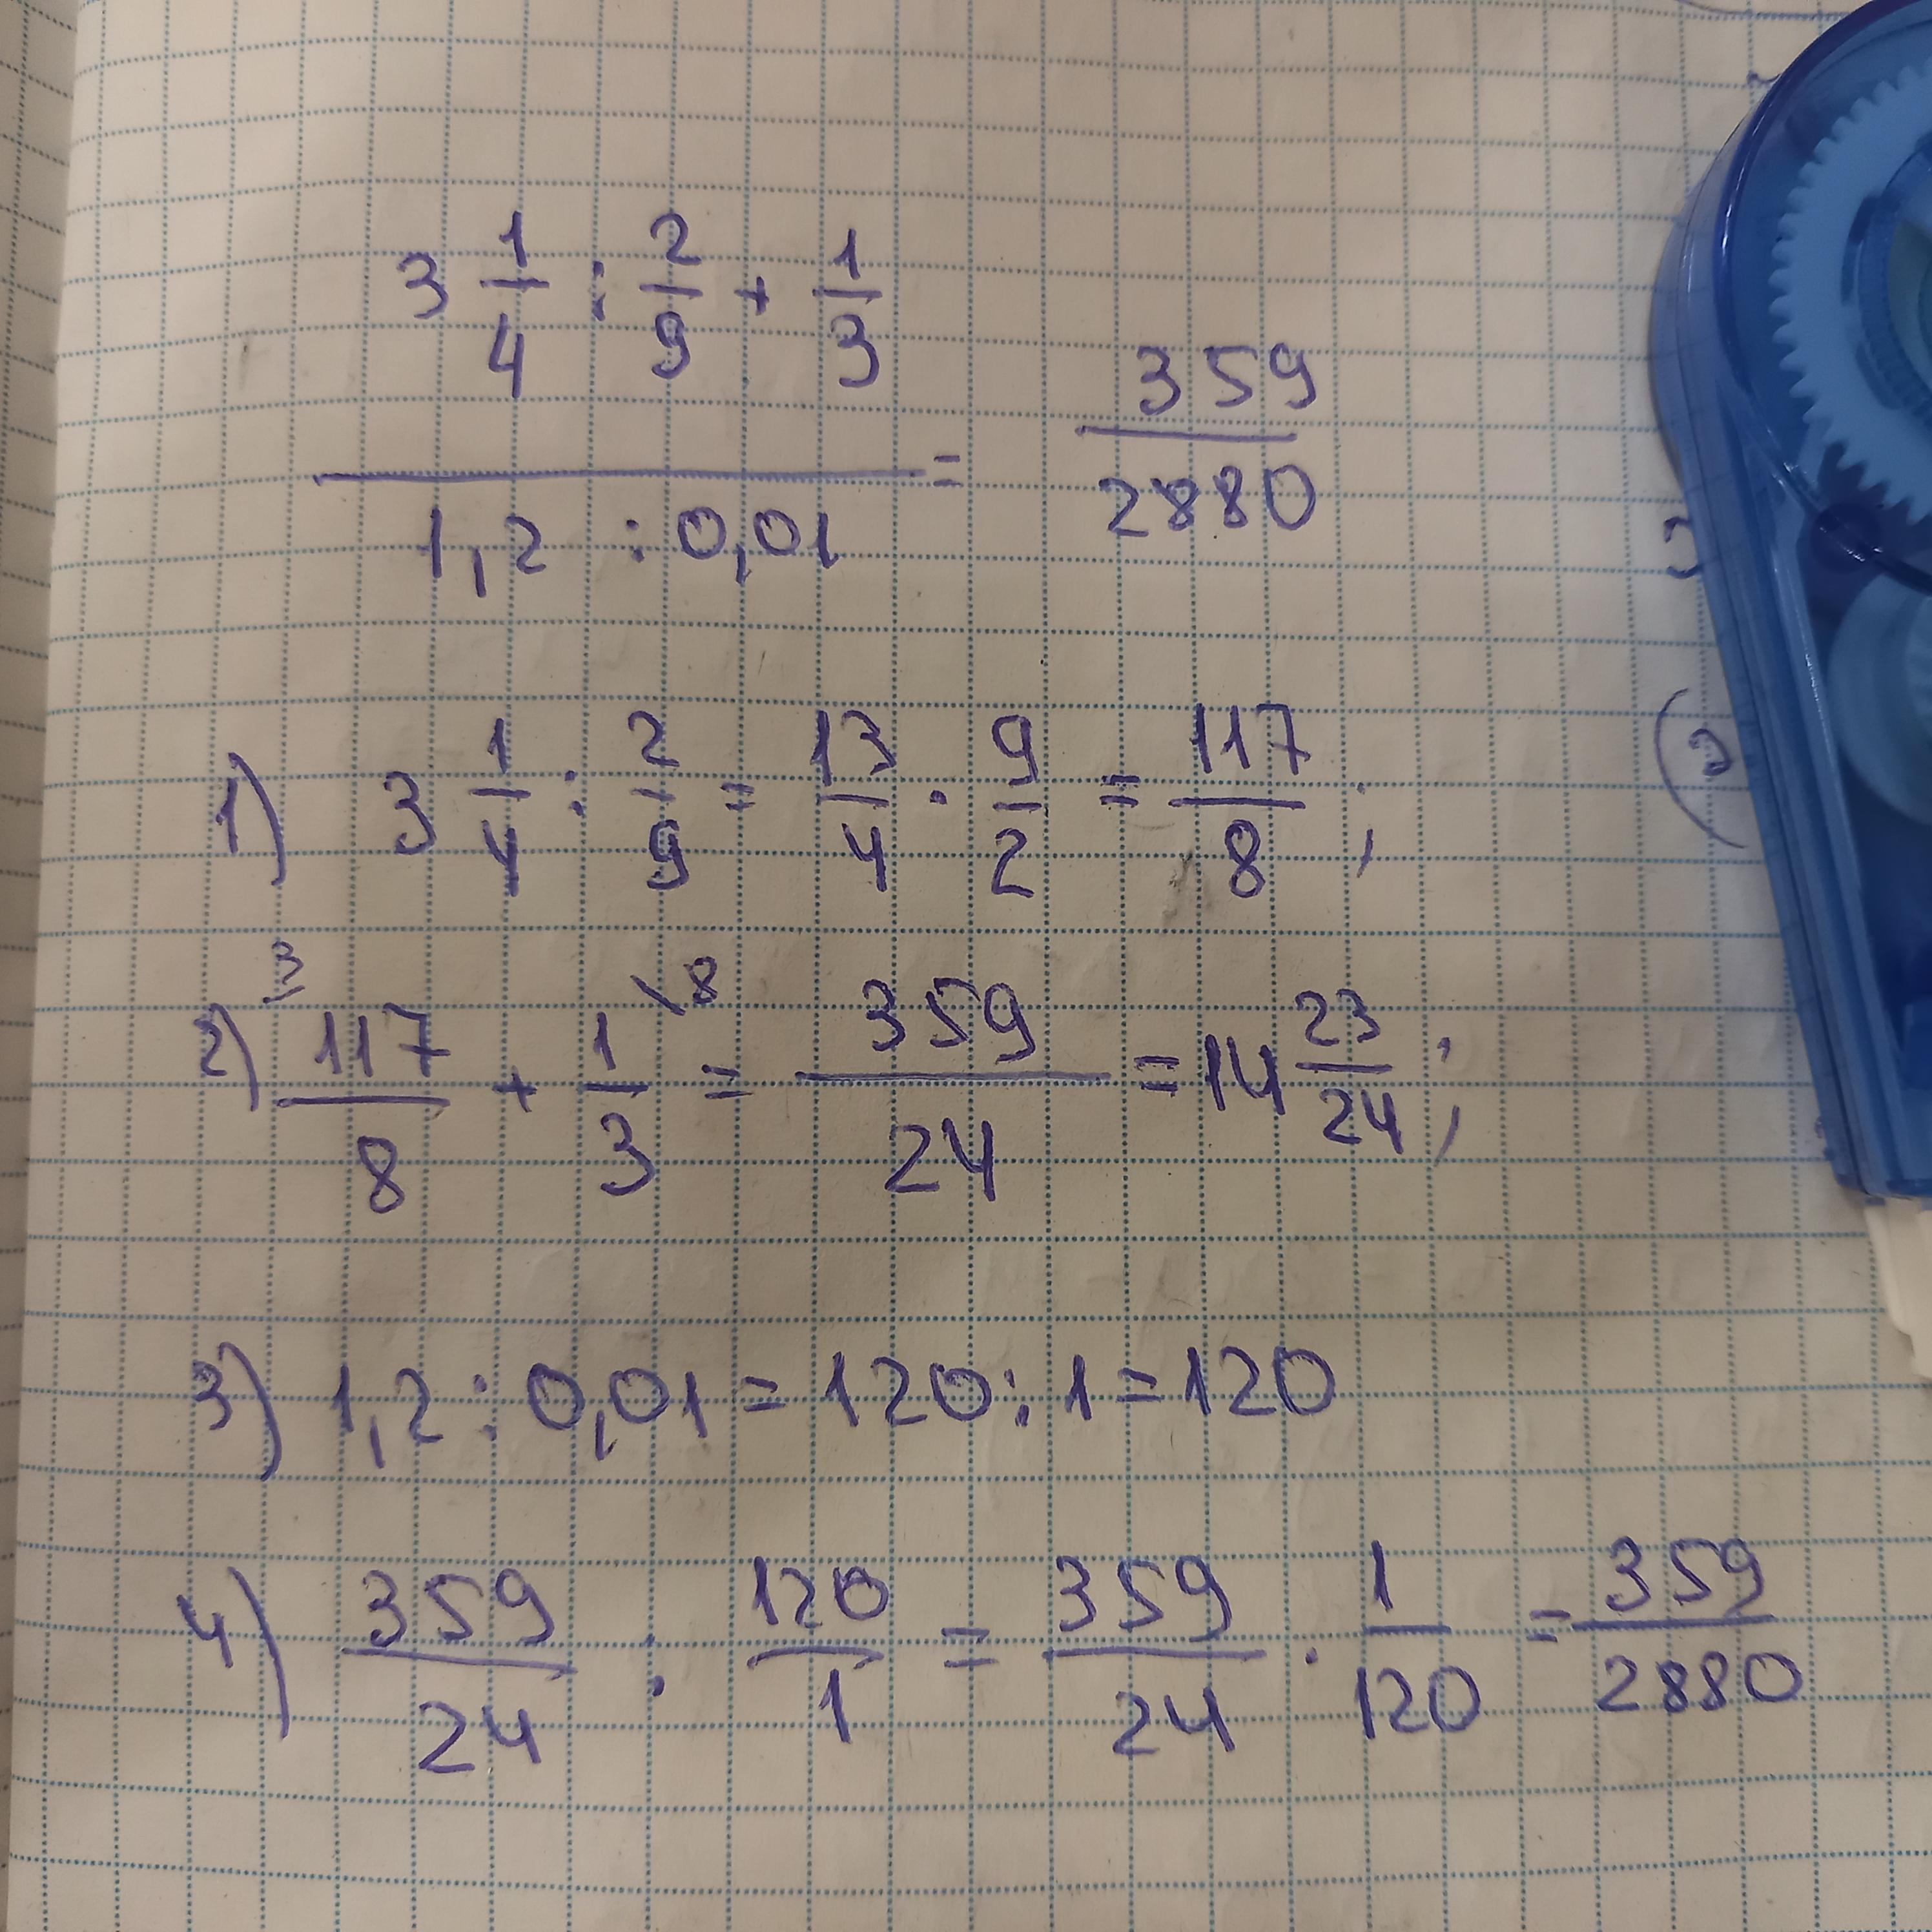 3 1/4 : 2/9 + 1/3
——— = 359/2880
1,2 : 0,01
1) 3 1/4 : 2/9 = 13/4 · 9/2 = 117/8 ;
2) 3/ 117/8 + 1/3 \8 = 359/24 = 14 23/24 ;
3) 1,2 : 0,01 = 120 : 1 = 120
4) 359/24 : 120/1 = 359/24 · 1/120 = 359/2880